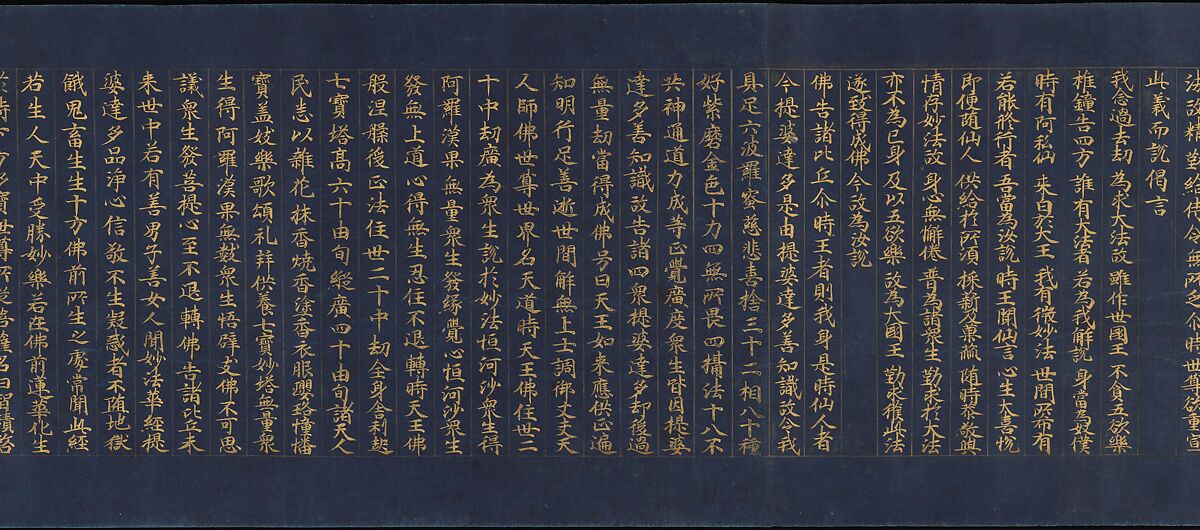 此義而說偈言
我念過去劫 為求大法故 雖作世國王 不貪五欲樂
椎鐘告四方 誰有大法者 若為我解說 身當為奴僕
時有阿私仙 来白於大王 我有微妙法 世間所希有
若能脩行者 吾當為汝說 時王聞仙言 心生大喜悅
即便随仙人 供給於所湏 採薪及菓蓏 随時恭敬與
情存妙法故 身心無懈倦 普為諸衆生 勤求於大法
亦不為己身 及以五欲樂 故為大國王 勤求獲此法
遂致得成佛 今故為汝說
佛告諸比丘尒時王者則我身是時仙人者
今提婆達多是由提婆達多善知識故令我
具足六波羅蜜慈悲喜捨三十二相八十種
好紫磨金色十力四無所畏四攝法十八不
共神通道力成等正覺廣度衆生皆因提婆
達多善知識故告諸四衆提婆達多却後過
無量劫當得成佛号曰天王如来應供正遍
知明行足善逝世間解無上士調御丈夫天
人師佛世尊世界名天道時天王佛住世二
十中劫廣為衆生說於妙法恒河沙衆生得
阿羅漢果無量衆生發緣覺心恒河沙衆生
發無上道心得無生忍住不退轉時天王佛
般涅槃後正法住世二十中劫全身舍利起
七寶塔高六十由旬縱廣四十由旬諸天人
民悉以雜花抹香燒香塗香衣服瓔珞幢幡
寶蓋妓樂歌頌礼拜供養七寶妙塔無量衆
生得阿羅漢果無數衆生悟辟支佛不可思
議衆生發菩提心至不退轉佛告諸比丘未
来世中若有善男子善女人聞妙法華經提
婆達多品淨心信敬不生疑惑者不堕地獄
餓鬼畜生生十方佛前所生之處常聞此經
若生人天中受勝妙樂若在佛前蓮華化生